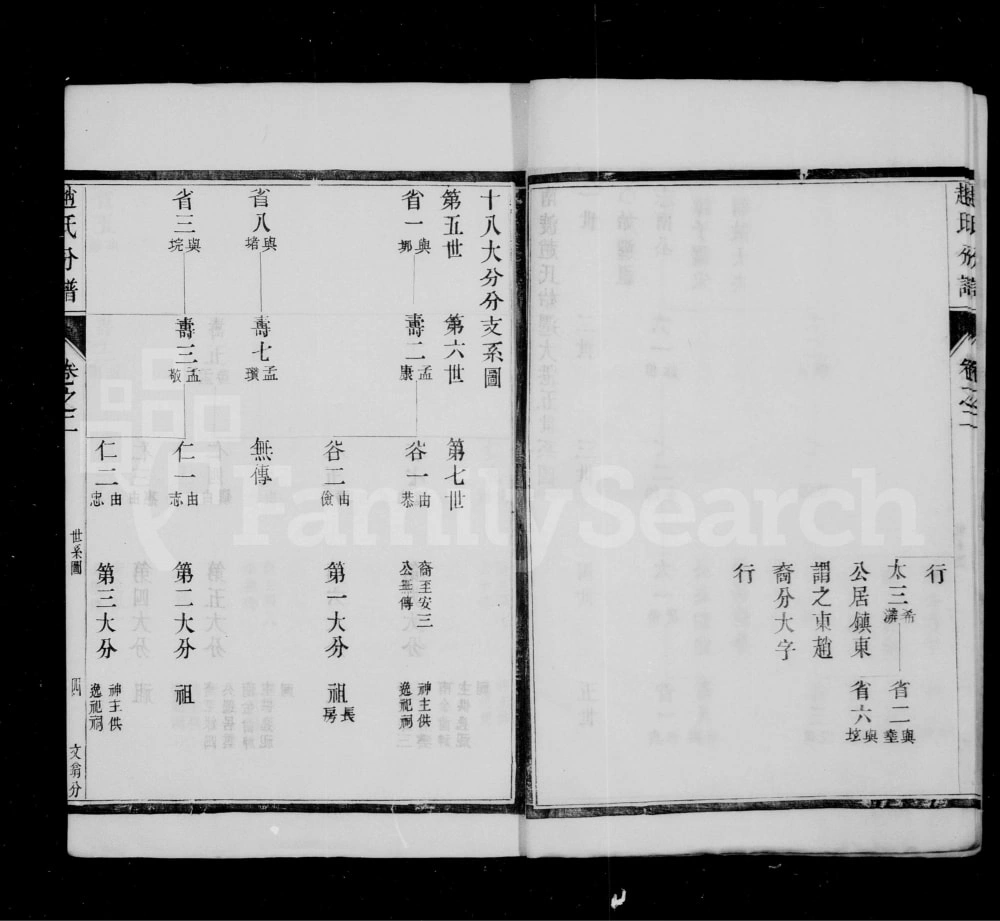 趙氏分譜 卷之二
行
太三希 省二與
公居鎮東 省六與
謂之東趙
裔分大字
行
十八大分分支系圖
第五世 第六世 第七世
省一與郷 壽二孟康 谷一由恭 裔至安三公無傳 神主供逸祀祠
谷二由儉 第一大分 祖長房
省八與堵 壽七孟瓚 無傳
省三與垸 壽三孟敬 仁一由志 第二大分 祖
仁二由忠 第三大分 神主供逸祀祠
趙氏分譜 卷之二 世系圖 四 文翁分
FamilySearch